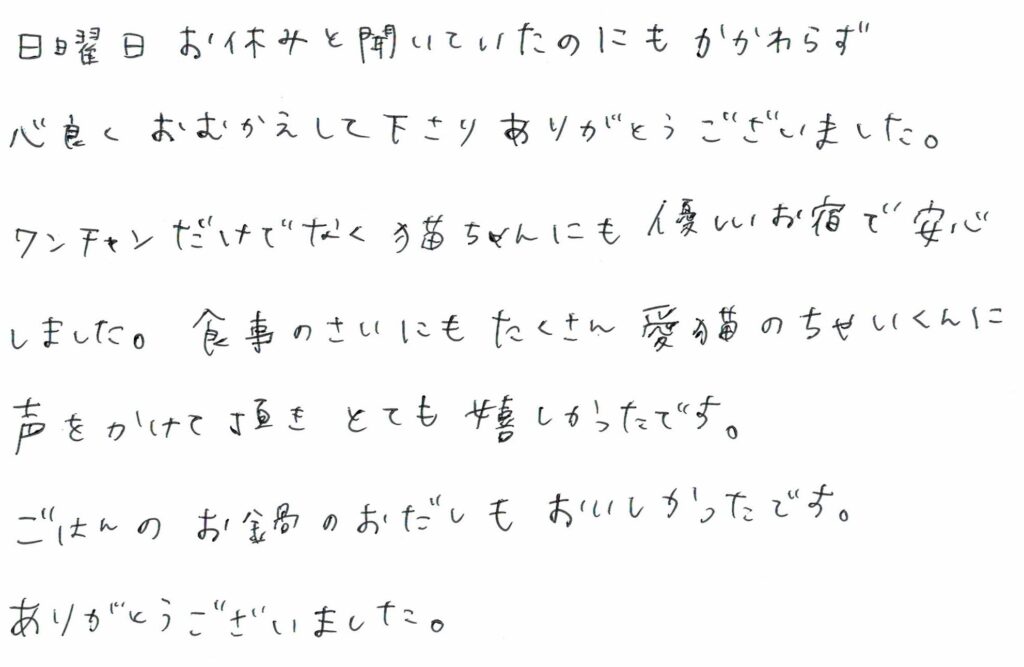 日曜日 お休みと聞いていたのにもかかわらず
心良く おむかえして下さり ありがとうございました。
ワンチャンだけでなく 猫ちゃんにも 優しいお宿で安心
しました。 食事のさいにも たくさん 愛猫のちせいくんに
声をかけて頂き とても 嬉しかったです。
ごはんの お鍋のおだしも おいしかったです。
ありがとうございました。